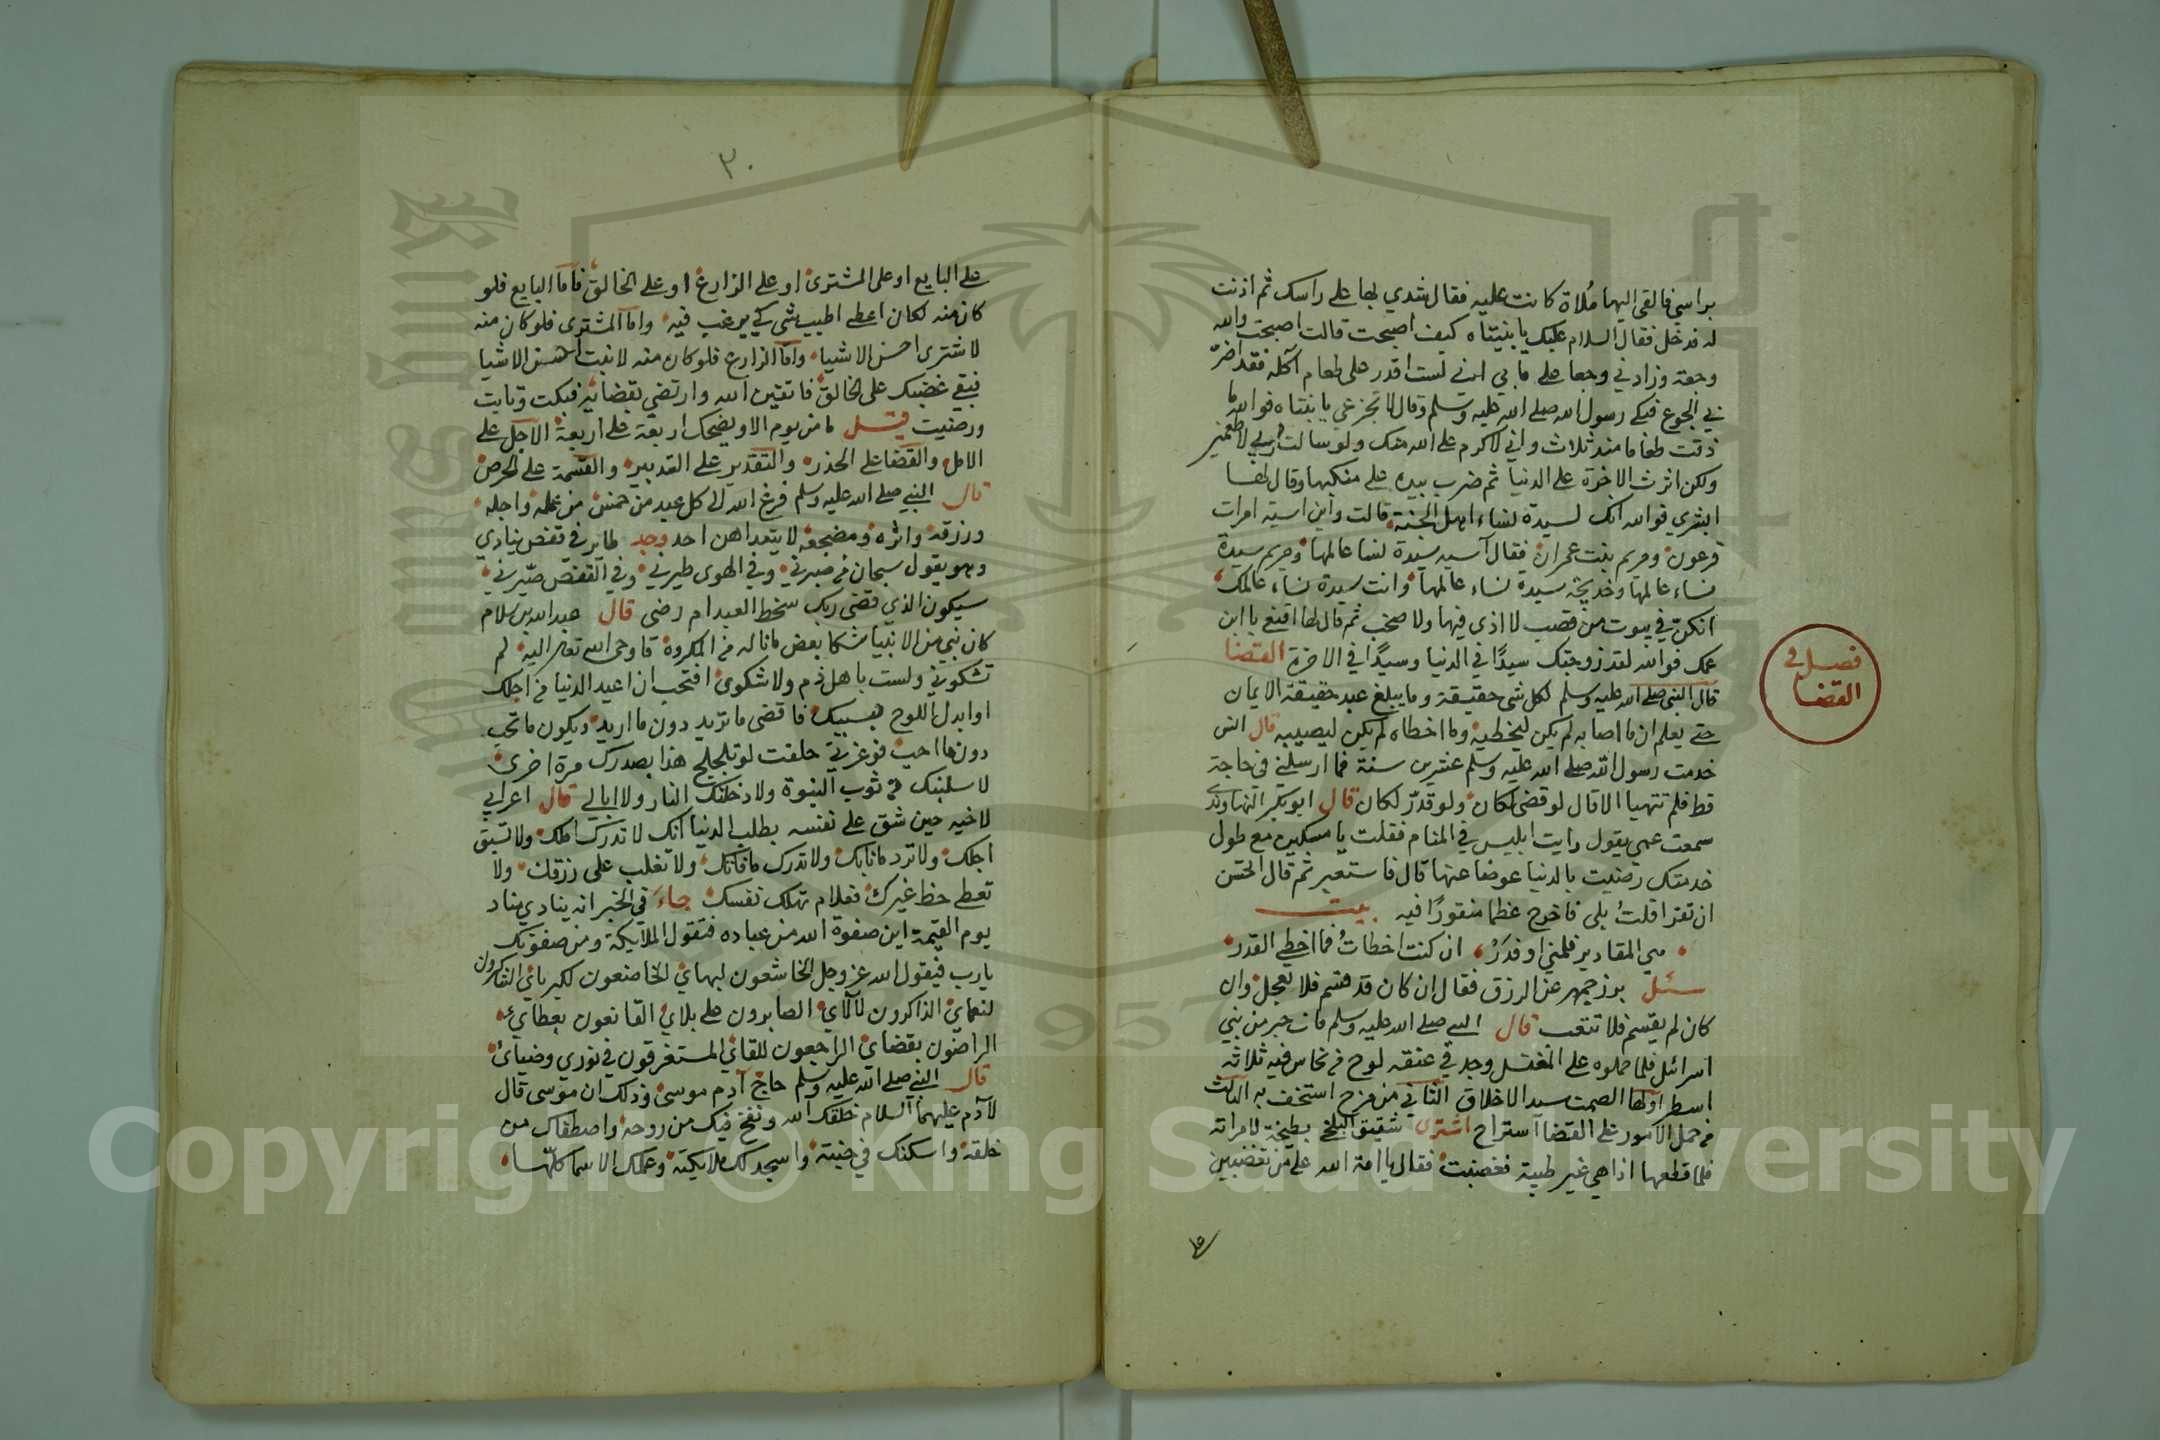 براسي فالقى اليها مُلاة كانت عليه فقال شدي بها على راسك ثم اذنت
له فدخل فقال السلام عليك يا بنيتاه كيف اصبحت قالت اصبحت والله
وجعة وزادني وجعا على ما بي اني لست اقدر على طعام آكله فقد اضر
بي الجوع فبكى رسول الله صلى الله عليه وسلم وقال لا تجزعي يا بنتاه فوالله ما
ذقت طعاما منذ ثلاث واني لاكرم على الله منك ولو سالت ربي لاطعمني
ولكن اثرت الاخرة على الدنيا ثم ضرب بيده على منكبها وقال لها
ابشري فوالله انك لسيدة نساء اهل الجنة قالت واين اسية امرات
فرعون ومريم بنت عمران فقال آسية سيدة نسا عالمها ومريم سيدة
نساء عالمها وخديجة سيدة نساء عالمها وانت سيدة نساء عالمك
انكن في بيوت من قصب لا اذى فيها ولا صخب ثم قال لها اقنعي بابن
عمك فوالله لقد زوجتك سيدًا في الدنيا وسيدًا في الاخرة القضا
فصل في
القضا
قال النبي صلى الله عليه وسلم لكل شي حقيقة وما يبلغ عبد حقيقة الايمان
حتى يعلم ان ما اصابه لم يكن ليخطيه وما اخطاه لم يكن ليصيبه قال انس
خدمت رسول الله صلى الله عليه وسلم عشرين سنة فما ارسلني في حاجة
قط فلم تتهيا الا قال لو قضى لكان ولو قدّر لكان قال ابو بكر النهاوندي
سمعت عمي يقول رايت ابليس في المنام فقلت يا مسكين مع طول
خدمتك رضيت بالدنيا عوضا عنها قال فاستعبر ثم قال اتحسن
ان تقرا قلتُ بلى فاخرج عظما منقورًا فيه بيت
هي المقادير فلمني او فذر ان كنت اخطات فما اخطى القدر
سئل بزرجمهر عن الرزق فقال ان كان قد قسم فلا تعجل وان
كان لم يقسم فلا تتعب قال النبي صلى الله عليه وسلم مات حبر من بني
اسرائل فلما حملوه على المغتسل وجد في عنقه لوح من نحاس فيه ثلاثة
اسطر اولها الصمت سيد الاخلاق الثاني من مزح استخف به الثالث
من حمل الامور على القضا استراح اشترى شقيق البلخي بطيخة لامراته
فلما قطعها اذا هي غير طيبة فغضبت فقال يا امة الله على من تغضبين
على
٣٠
على البايع او على المشترى او على الزارع او على الخالق فاما البايع فلو
كان منه لكان اعطى اطيب شي كي يرغب فيه واما المشترى فلو كان منه
لاشترى احسن الاشيا واما الزارع فلو كان منه لانبت احسن الاشيا
فبقي غضبك على الخالق فاتقين الله وارتضي بقضائه فبكت وتابت
ورضيت قيل ما من يوم الا ويضحك اربعة على اربعة الاجل على
الامل والقضا على الحذر والتقدير على التدبير والقسمة على الحرص
قال النبي صلى الله عليه وسلم فرغ الله الى كل عبد من خمس من عمله واجله
ورزقه واثره ومضجعه لا يتعداهن احد وجد طاير في قفص ينادي
وهو يقول سبحان من صبرني وفي الهوى طيرني وفي القفص صيرني
سيكون الذي قضى ربك سخط العبد ام رضى قال عبد الله بن سلام
كان نبي من الانبيا شكا بعض ما ناله من المكروه فاوحى الله تعالى اليه لم
تشكوني ولست باهل ذم ولا شكوى افتحب ان اعيد الدنيا من اجلك
او ابدل اللوح بسببك فاقضى ما تريد دون ما اريد ويكون ما تحب
دون ما احب فوعزتي حلفت لو تلجلج هذا بصدرك مرة اخرى
لاسلبنك من ثوب النبوة ولادخلنك النار ولا ابالي قال اعرابي
لاخيه حين شق على نفسه بطلب الدنيا انك لا تدرك املك ولا تسبق
اجلك ولا ترد ما نابك ولا تدرك ما فاتك ولا تغلب على رزقك ولا
تعطى حظ غيرك فعلام تهلك نفسك جاء في الخبر انه ينادي مناد
يوم القيمة اين صفوة الله من عباده فتقول الملايكة ومن صفوتك
يا رب فيقول الله عز وجل الخاشعون لبهائي الخاضعون لكبريائي الشاكرون
لنعمائي الذاكرون لآلائي الصابرون على بلائي القانعون بعطائي
الراضون بقضائي الراجعون للقائي المستغرقون في نوري وضيائي
قال النبي صلى الله عليه وسلم حاج آدم موسى وذلك ان موسى قال
لآدم عليهما السلام خلقك الله ونفخ فيك من روحه واصطفاك من
خلقه واسكنك في جنته واسجد لك ملايكته وعلمك الاسما كلها
Copyright © King Saud University
1957